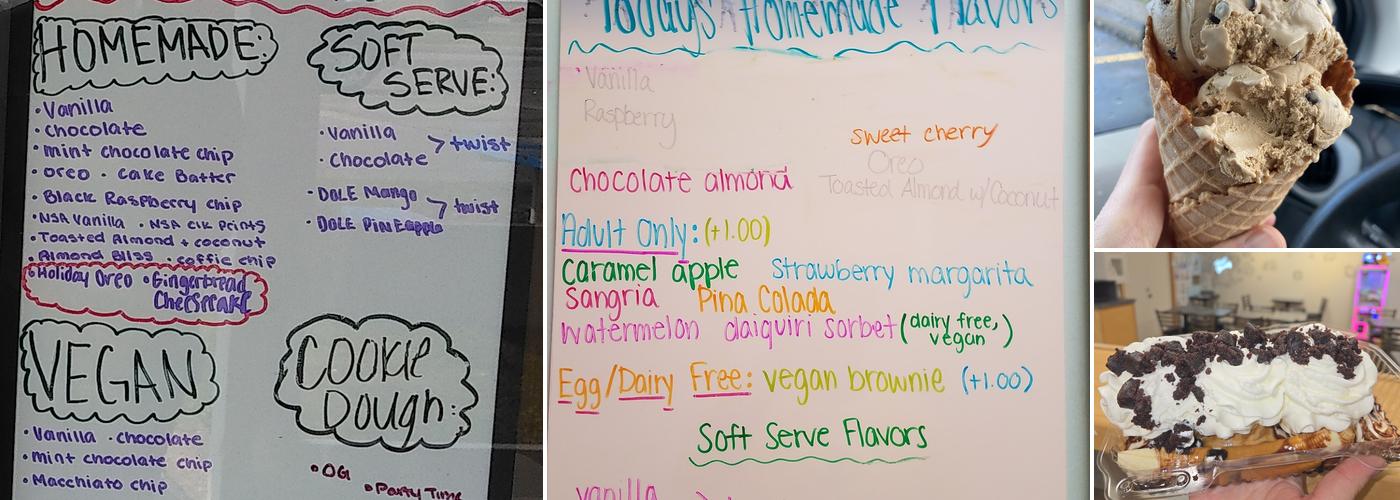 HOMEMADE:
• Vanilla
• Chocolate
• mint chocolate chip
• oreo • Cake Batter
• Black Raspberry chip
• NSA Vanilla • NSA
• Toasted Almond + coconut
• Almond Bliss • coffie chip
• Holiday Oreo • Gingerbread
Cheesecake
SOFT
SERVE:
• Vanilla
• Chocolate > twist
• DOLE Mango
• DOLE PinEapple > twist
VEGAN
• Vanilla • chocolate
• mint chocolate chip
• Macchiato chip
COOKIE
DOUGH:
• OG
• Party Time
Todays Homemade Flavors
Vanilla
Raspberry
sweet cherry
Oreo
Chocolate almond
Toasted Almond w/Coconut
Adult Only: (+1.00)
caramel apple strawberry margarita
Sangria Pina Colada
watermelon daiquiri sorbet (dairy free,
vegan)
Egg/Dairy Free: vegan brownie (+1.00)
Soft Serve Flavors
vanilla